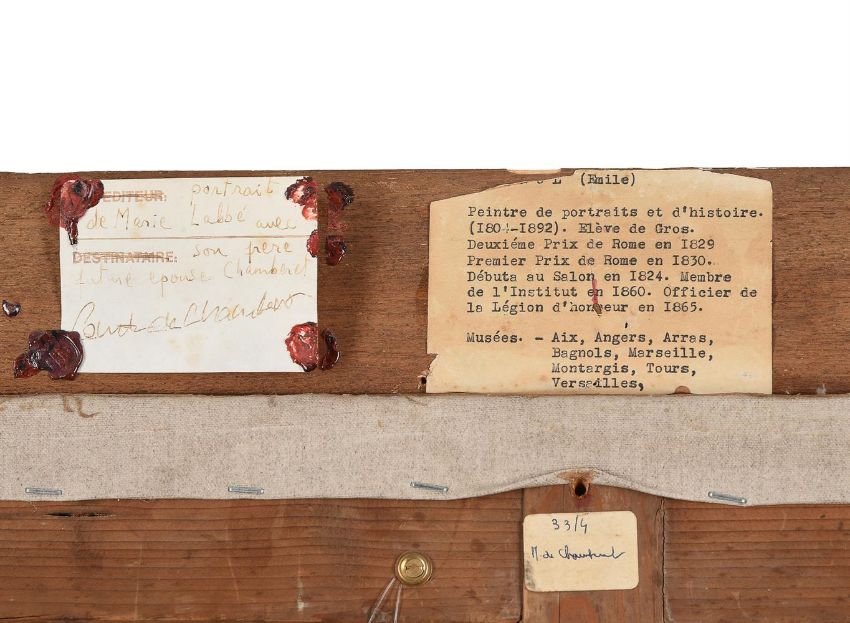 EDITEUR: portrait
de Marie Labbé avec
DESTINATAIRE: son frère
future épouse Chamberet
(Emile)
Peintre de portraits et d'histoire.
(I804-I892). Elève de Gros.
Deuxiéme Prix de Rome en I829
Premier Prix de Rome en I830.
Débuta au Salon en I824. Membre
de l'Institut en I860. Officier de
la Légion d'honneur en I865.
Musées. - Aix, Angérs, Arras,
Bagnols, Marseille,
Montargis, Tours,
Versailles,
33/4
M. de